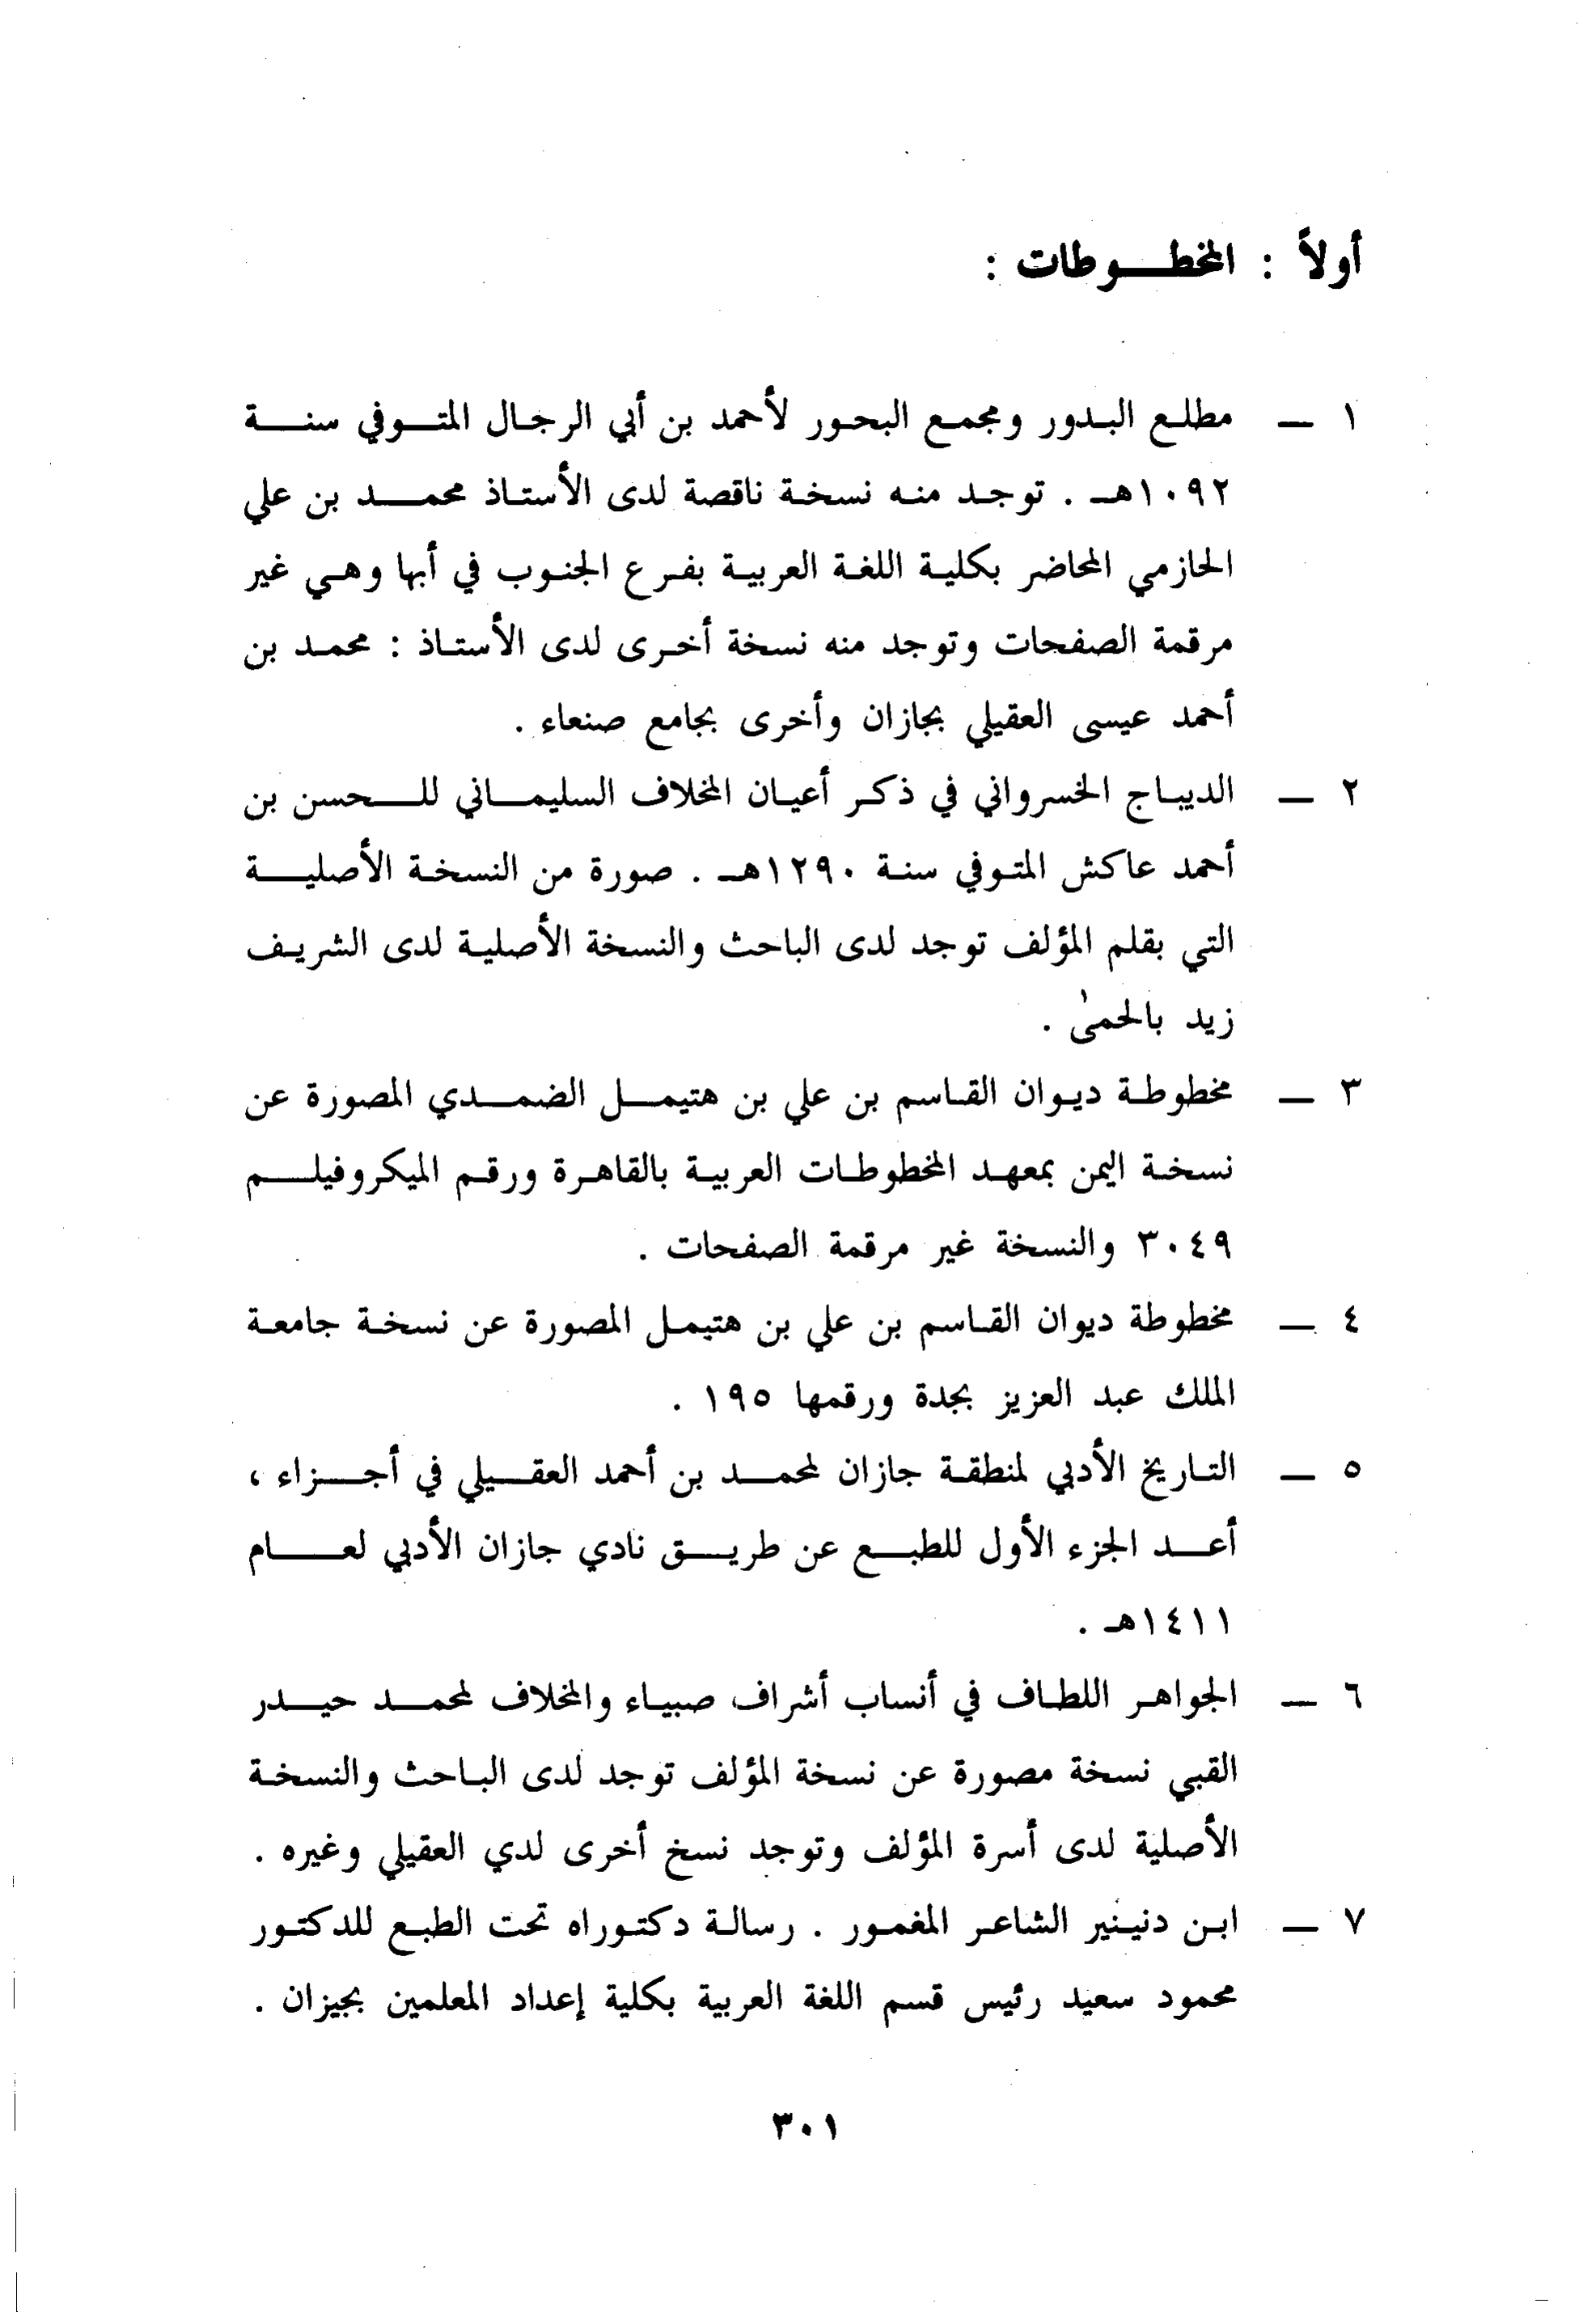 أولاً : المخطوطات :
١ — مطلع البدور ومجمع البحور لأحمد بن أبي الرجال المتوفي سنة
١٠٩٢هـ . توجد منه نسخة ناقصة لدى الأستاذ محمد بن علي
الحازمي المحاضر بكلية اللغة العربية بفرع الجنوب في أبها وهي غير
مرقمة الصفحات وتوجد منه نسخة أخرى لدى الأستاذ : محمد بن
أحمد عيسى العقيلي بجازان وأخرى بجامع صنعاء .
٢ — الديباج الخسرواني في ذكر أعيان المخلاف السليماني للحسن بن
أحمد عاكش المتوفي سنة ١٢٩٠هـ . صورة من النسخة الأصلية
التي بقلم المؤلف توجد لدى الباحث والنسخة الأصلية لدى الشريف
زيد بالحمىٰ .
٣ — مخطوطة ديوان القاسم بن علي بن هتيمل الضمدي المصورة عن
نسخة اليمن بمعهد المخطوطات العربية بالقاهرة ورقم الميكروفيلم
٣٠٤٩ والنسخة غير مرقمة الصفحات .
٤ — مخطوطة ديوان القاسم بن علي بن هتيمل المصورة عن نسخة جامعة
الملك عبد العزيز بجدة ورقمها ١٩٥ .
٥ — التاريخ الأدبي لمنطقة جازان لمحمد بن أحمد العقيلي في أجزاء ،
أعد الجزء الأول للطبع عن طريق نادي جازان الأدبي لعام
١٤١١هـ .
٦ — الجواهر اللطاف في أنساب أشراف صبياء والمخلاف لمحمد حيدر
القبي نسخة مصورة عن نسخة المؤلف توجد لدى الباحث والنسخة
الأصلية لدى أسرة المؤلف وتوجد نسخ أخرى لدي العقيلي وغيره .
٧ — ابن دنينير الشاعر المغمور . رسالة دكتوراه تحت الطبع للدكتور
محمود سعيد رئيس قسم اللغة العربية بكلية إعداد المعلمين بجيزان .
٣٠١